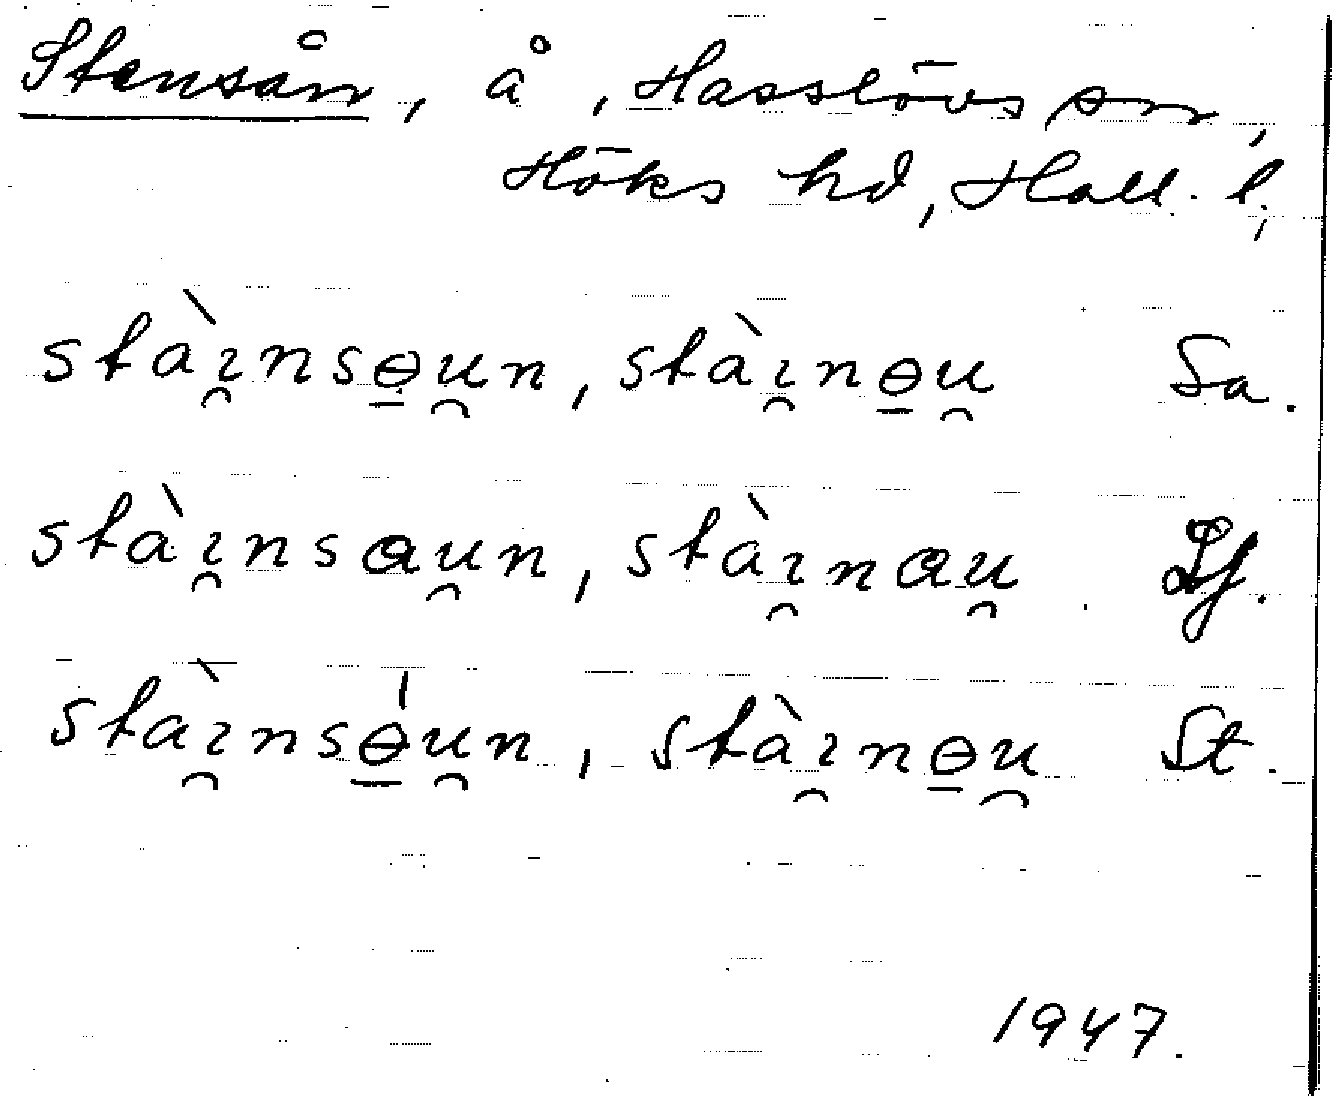 Stensån, å, Hasslövs sn,
Höks hd, Hall. l.,
stàı̯nsɵ̲u̯n, stàı̯nɵ̲u̯ Sa.
stàı̯nsɑu̯n, stàı̯nɑu̯ Lf.
stàı̯nsɵ̲́u̯n, stàı̯nɵ̲u̯ St.
1947.